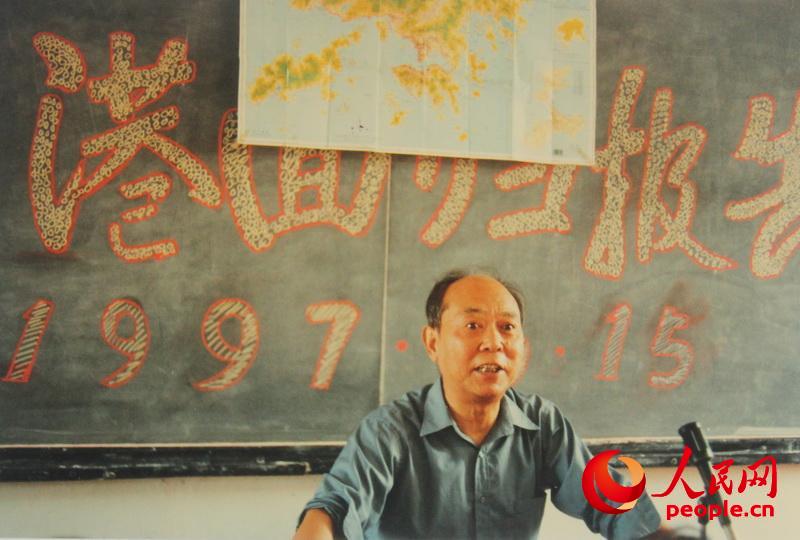 港回归报告
1997· ·15
人民网
people.cn